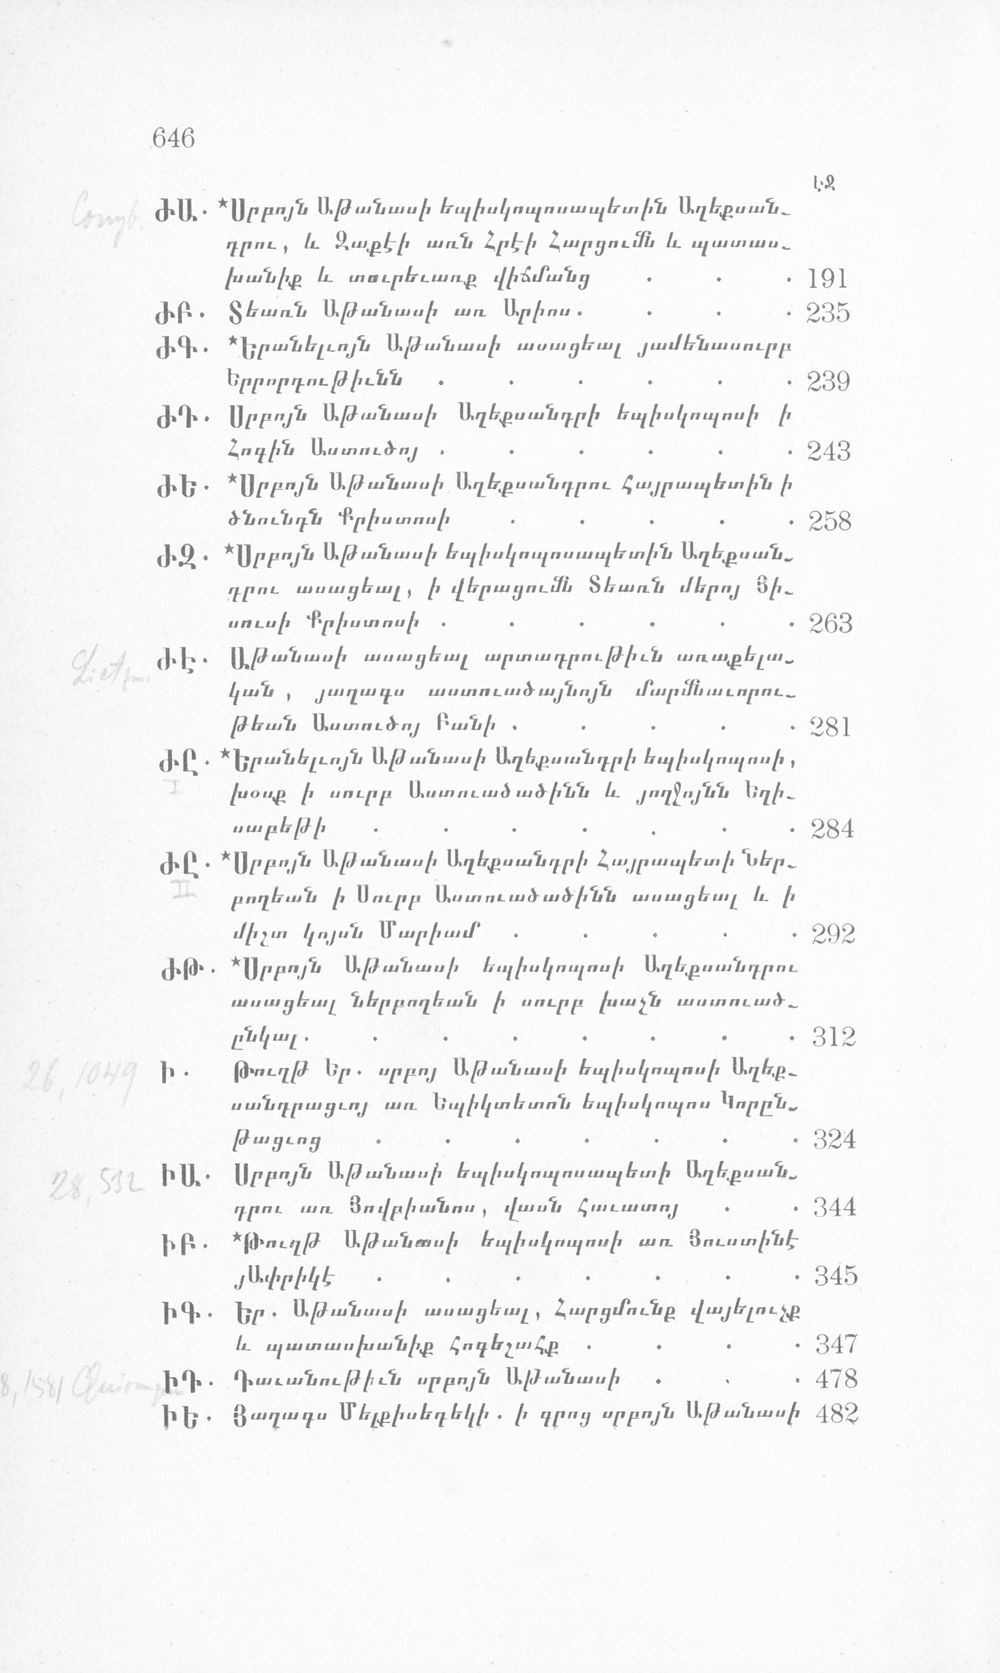 646
ԷՋ
ԺԱ. *Սրբոյն Աթանասի եպիսկոպոսապետին Աղեքսան-
դրու, և Զաքէի առն Հրէի Հարցումն և պատաս-
խանիք և տուրեւառք վիճմանց . . . 191
ԺԲ. Տեառն Աթանասի առ Արիոս. . . . 235
ԺԳ. *Երանելւոյն Աթանասի ասացեալ յամենասուրբ
Երրորդութիւնն . . . . . . 239
ԺԴ. Սրբոյն Աթանասի Աղեքսանդրի եպիսկոպոսի ի
Հոգին Աստուծոյ . . . . . . 243
ԺԵ. *Սրբոյն Աթանասի Աղեքսանդրու Հայրապետին ի
ծնունդն Քրիստոսի . . . . . 258
ԺԶ. *Սրբոյն Աթանասի եպիսկոպոսապետին Աղեքսան-
դրու ասացեալ, ի վերացումն Տեառն մերոյ Յի-
սուսի Քրիստոսի . . . . . . 263
ԺԷ. Աթանասի ասացեալ արտադրութիւն առաքելա-
կան, յաղագս աստուածայնոյն մարմնաւորու-
թեան Աստուծոյ Բանի . . . . . 281
ԺԸ. *Երանելւոյն Աթանասի Աղեքսանդրի եպիսկոպոսի,
I
խօսք ի սուրբ Աստուածածինն և յողջոյնն Եղի-
սաբեթի . . . . . . . 284
ԺԸ. *Սրբոյն Աթանասի Աղեքսանդրի Հայրապետի Ներ-
II
բողեան ի Սուրբ Աստուածածինն ասացեալ և ի
միշտ կոյսն Մարիամ . . . . . 292
ԺԹ. *Սրբոյն Աթանասի եպիսկոպոսի Աղեքսանդրու
ասացեալ ներբողեան ի սուրբ խաչն աստուած-
ընկալ. . . . . . . . 312
26, 1049
Ի. Թուղթ Եր. սրբոյ Աթանասի եպիսկոպոսի Աղեք-
սանդրացւոյ առ Եպիկտետոն եպիսկոպոս Կորըն-
թացւոց . . . . . . . 324
28, 532
ԻԱ. Սրբոյն Աթանասի եպիսկոպոսապետի Աղեքսան-
դրու առ Յովբիանոս, վասն Հաւատոյ . . 344
ԻԲ. *Թուղթ Աթանասի եպիսկոպոսի առ Յուստինէ
յԱփրիկէ . . . . . . . 345
ԻԳ. Եր. Աթանասի ասացեալ, Հարցմունք վայելուչք
և պատասխանիք Հոգեշահք . . . . 347
ԻԴ. Դաւանութիւն սրբոյն Աթանասի . . . 478
ԻԵ. Յաղագս Մելքիսեդեկի. ի գրոց սրբոյն Աթանասի 482